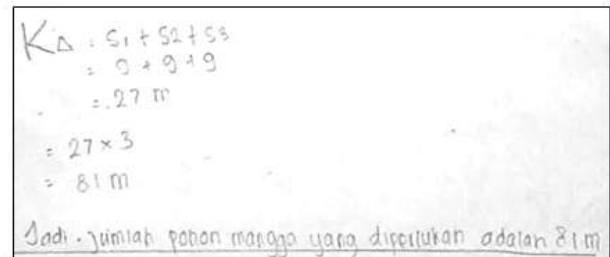 K△ : S1 + S2 + S3
= 9 + 9 + 9
= 27 m
= 27 × 3
= 81 m
Jadi. jumlah pohon mangga yang diperlukan adalah 81 m